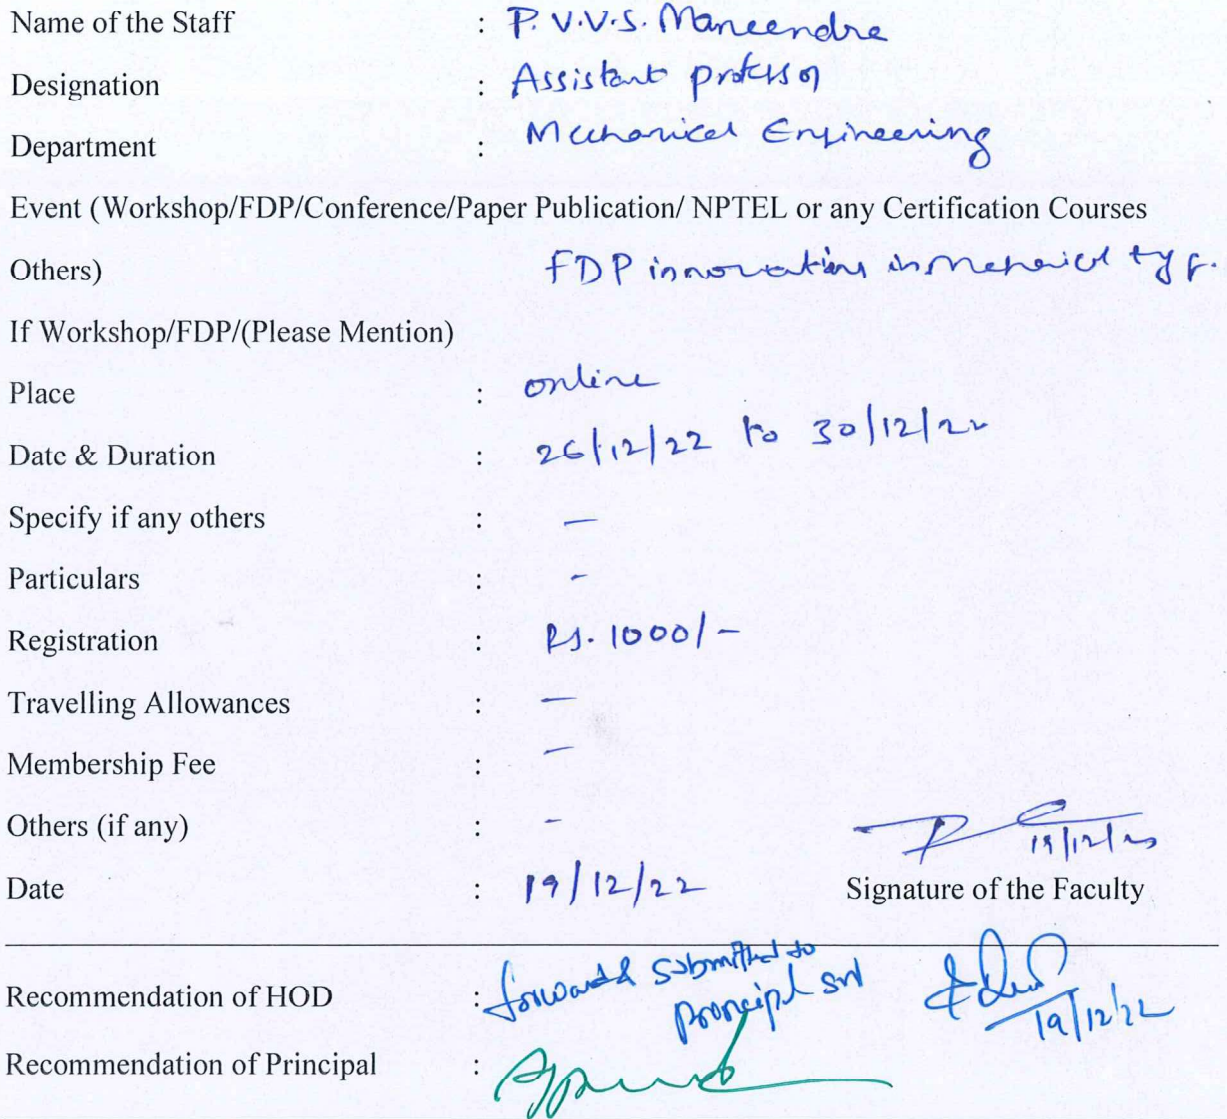 Name of the Staff : P. V.V.S. Maneendra
Designation : Assistant professor
Department : Mechanical Engineering
Event (Workshop/FDP/Conference/Paper Publication/ NPTEL or any Certification Courses
Others) FDP innovations in
If Workshop/FDP/(Please Mention)
Place : online
Date & Duration : 26/12/22 to 30/12/22
Specify if any others : —
Particulars : -
Registration : Rs. 1000/-
Travelling Allowances : —
Membership Fee : —
Others (if any) : -
19/12/22
Date : 19/12/22 Signature of the Faculty
Recommendation of HOD : forward & submitted to
principal
19/12/22
Recommendation of Principal :